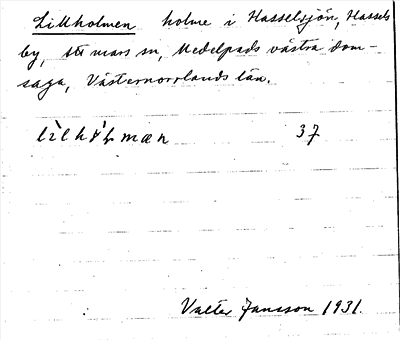 Lillholmen holme i Hasselsjön, Hassels
by, mars sn, Medelpads västra dom-
saga, Västernorrlands län.
37
Valter Jansson 1931.